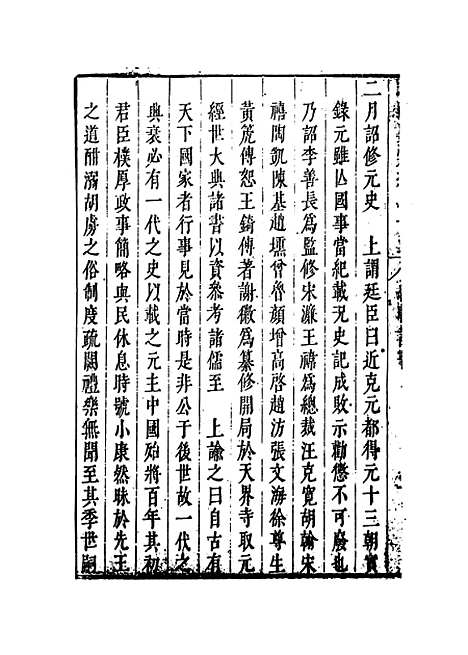 二月詔修元史　上謂廷臣曰近克元都得元十三朝實
錄元雖亾國事當紀載况史記成敗示勸懲不可廢也
乃詔李善長爲監修宋濂王禕爲總裁汪克寬胡翰宋
禧陶凱陳基趙壎曾魯顏增高啓趙汸張文海徐尊生
黃箎傅恕王錡傅著謝徽爲纂修開局於天界寺取元
經世大典諸書以資參考諸儒至　上諭之曰自古有
天下國家者行事見於當時是非公于後世故一代之
興衰必有一代之史以載之元主中國殆將百年其初
君臣樸厚政事簡略與民休息時號小康然昧於先王
之道酣溺胡虜之俗制度疏闊禮樂無聞至其季世嗣